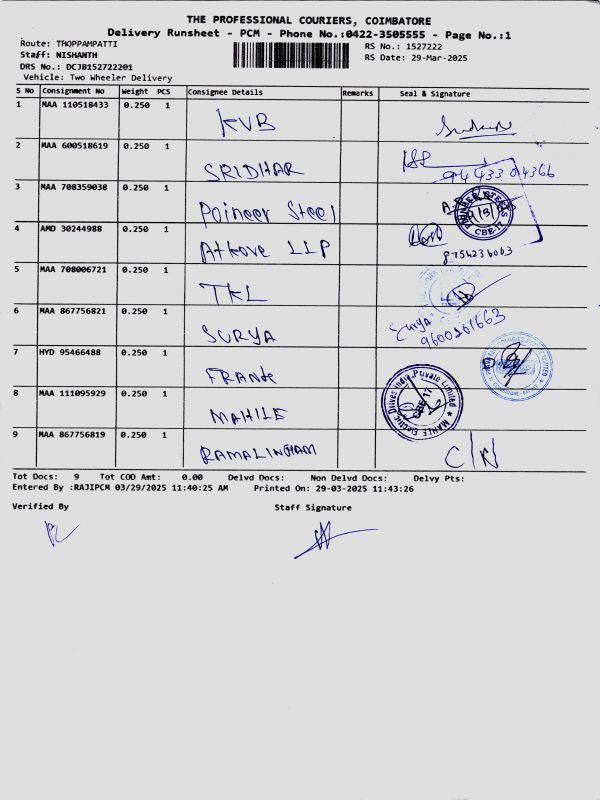 THE PROFESSIONAL COURIERS, COIMBATORE
Delivery Runsheet - PCM - Phone No.:0422-3505555 - Page No.:1
Route: THOPPAMPATTI
RS No.: 1527222
Staff: NISHANTH
RS Date: 29-Mar-2025
DRS No.: DCJB152722201
Vehicle: Two Wheeler Delivery
S No Consignment No Weight PCS Consignee Details Remarks Seal & Signature
1 MAA 110518433 0.250 1 KVB
2 MAA 600518619 0.250 1 SRIDHAR 9443304366
3 MAA 708359038 0.250 1 Poineer Steel
PIONEER STEELS CBE-17
4 AMD 30244988 0.250 1 Atkove LLP
8754236063
5 MAA 708006721 0.250 1 TKL
6 MAA 867756821 0.250 1 SURYA Surya
9600261663
7 HYD 95466488 0.250 1 FRANK
8 MAA 111095929 0.250 1 MAHILE
MAHLE Electric Drives India Private Limited CBE-17
9 MAA 867756819 0.250 1 RAMALINGHAM C/N
Tot Docs: 9 Tot COD Amt: 0.00 Delvd Docs: Non Delvd Docs: Delvy Pts:
Entered By :RAJIPCM 03/29/2025 11:40:25 AM Printed On: 29-03-2025 11:43:26
Verified By Staff Signature